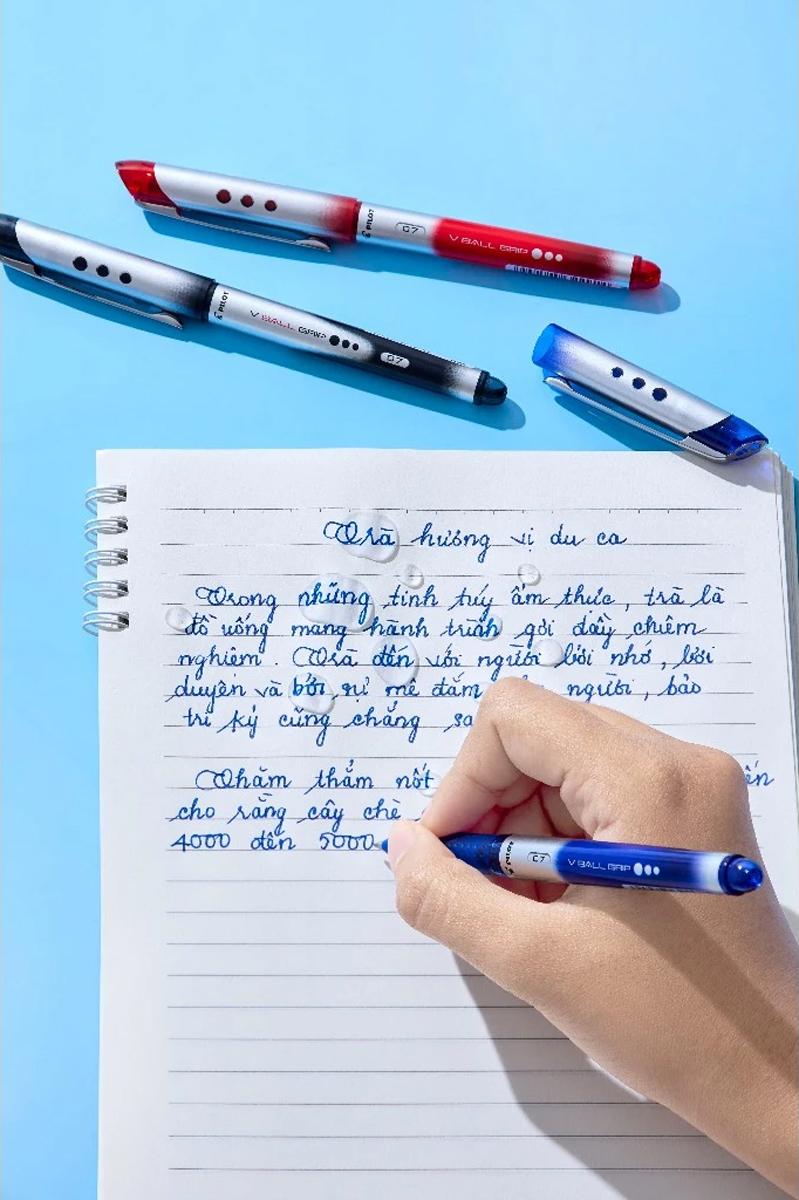 PILOT 07 V BALL GRIP
PILOT V BALL GRIP 07
Trà hương vị du ca
Trong những tinh túy ẩm thực, trà là
đồ uống mang hành trình gợi đầy chiêm
nghiệm. Trà đến với người bởi nhớ, bởi
duyên và bởi sự mê đắm người, bảo
tri kỷ cũng chẳng sa
Thăm thẳm nốt
cho rằng cây chè
4000 đến 5000
PILOT 07 V BALL GRIP